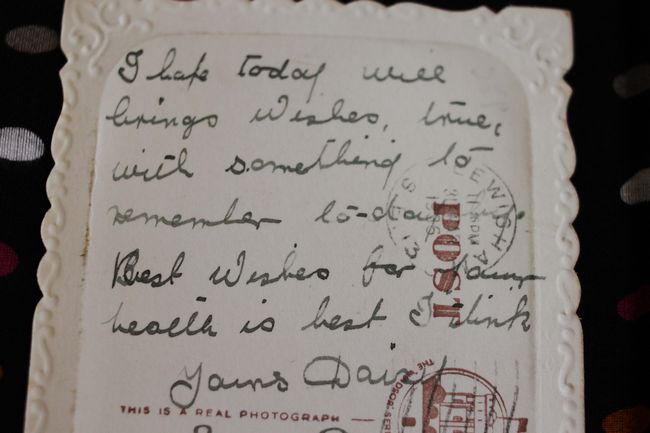 I hope today will
brings Wishes, true,
with something to
remember to-day by.
Best Wishes for your
health is best I think
Yours Daisy
THIS IS A REAL PHOTOGRAPH
LEWISHAM S.E.13
POST
THE WINDSOR SERIES